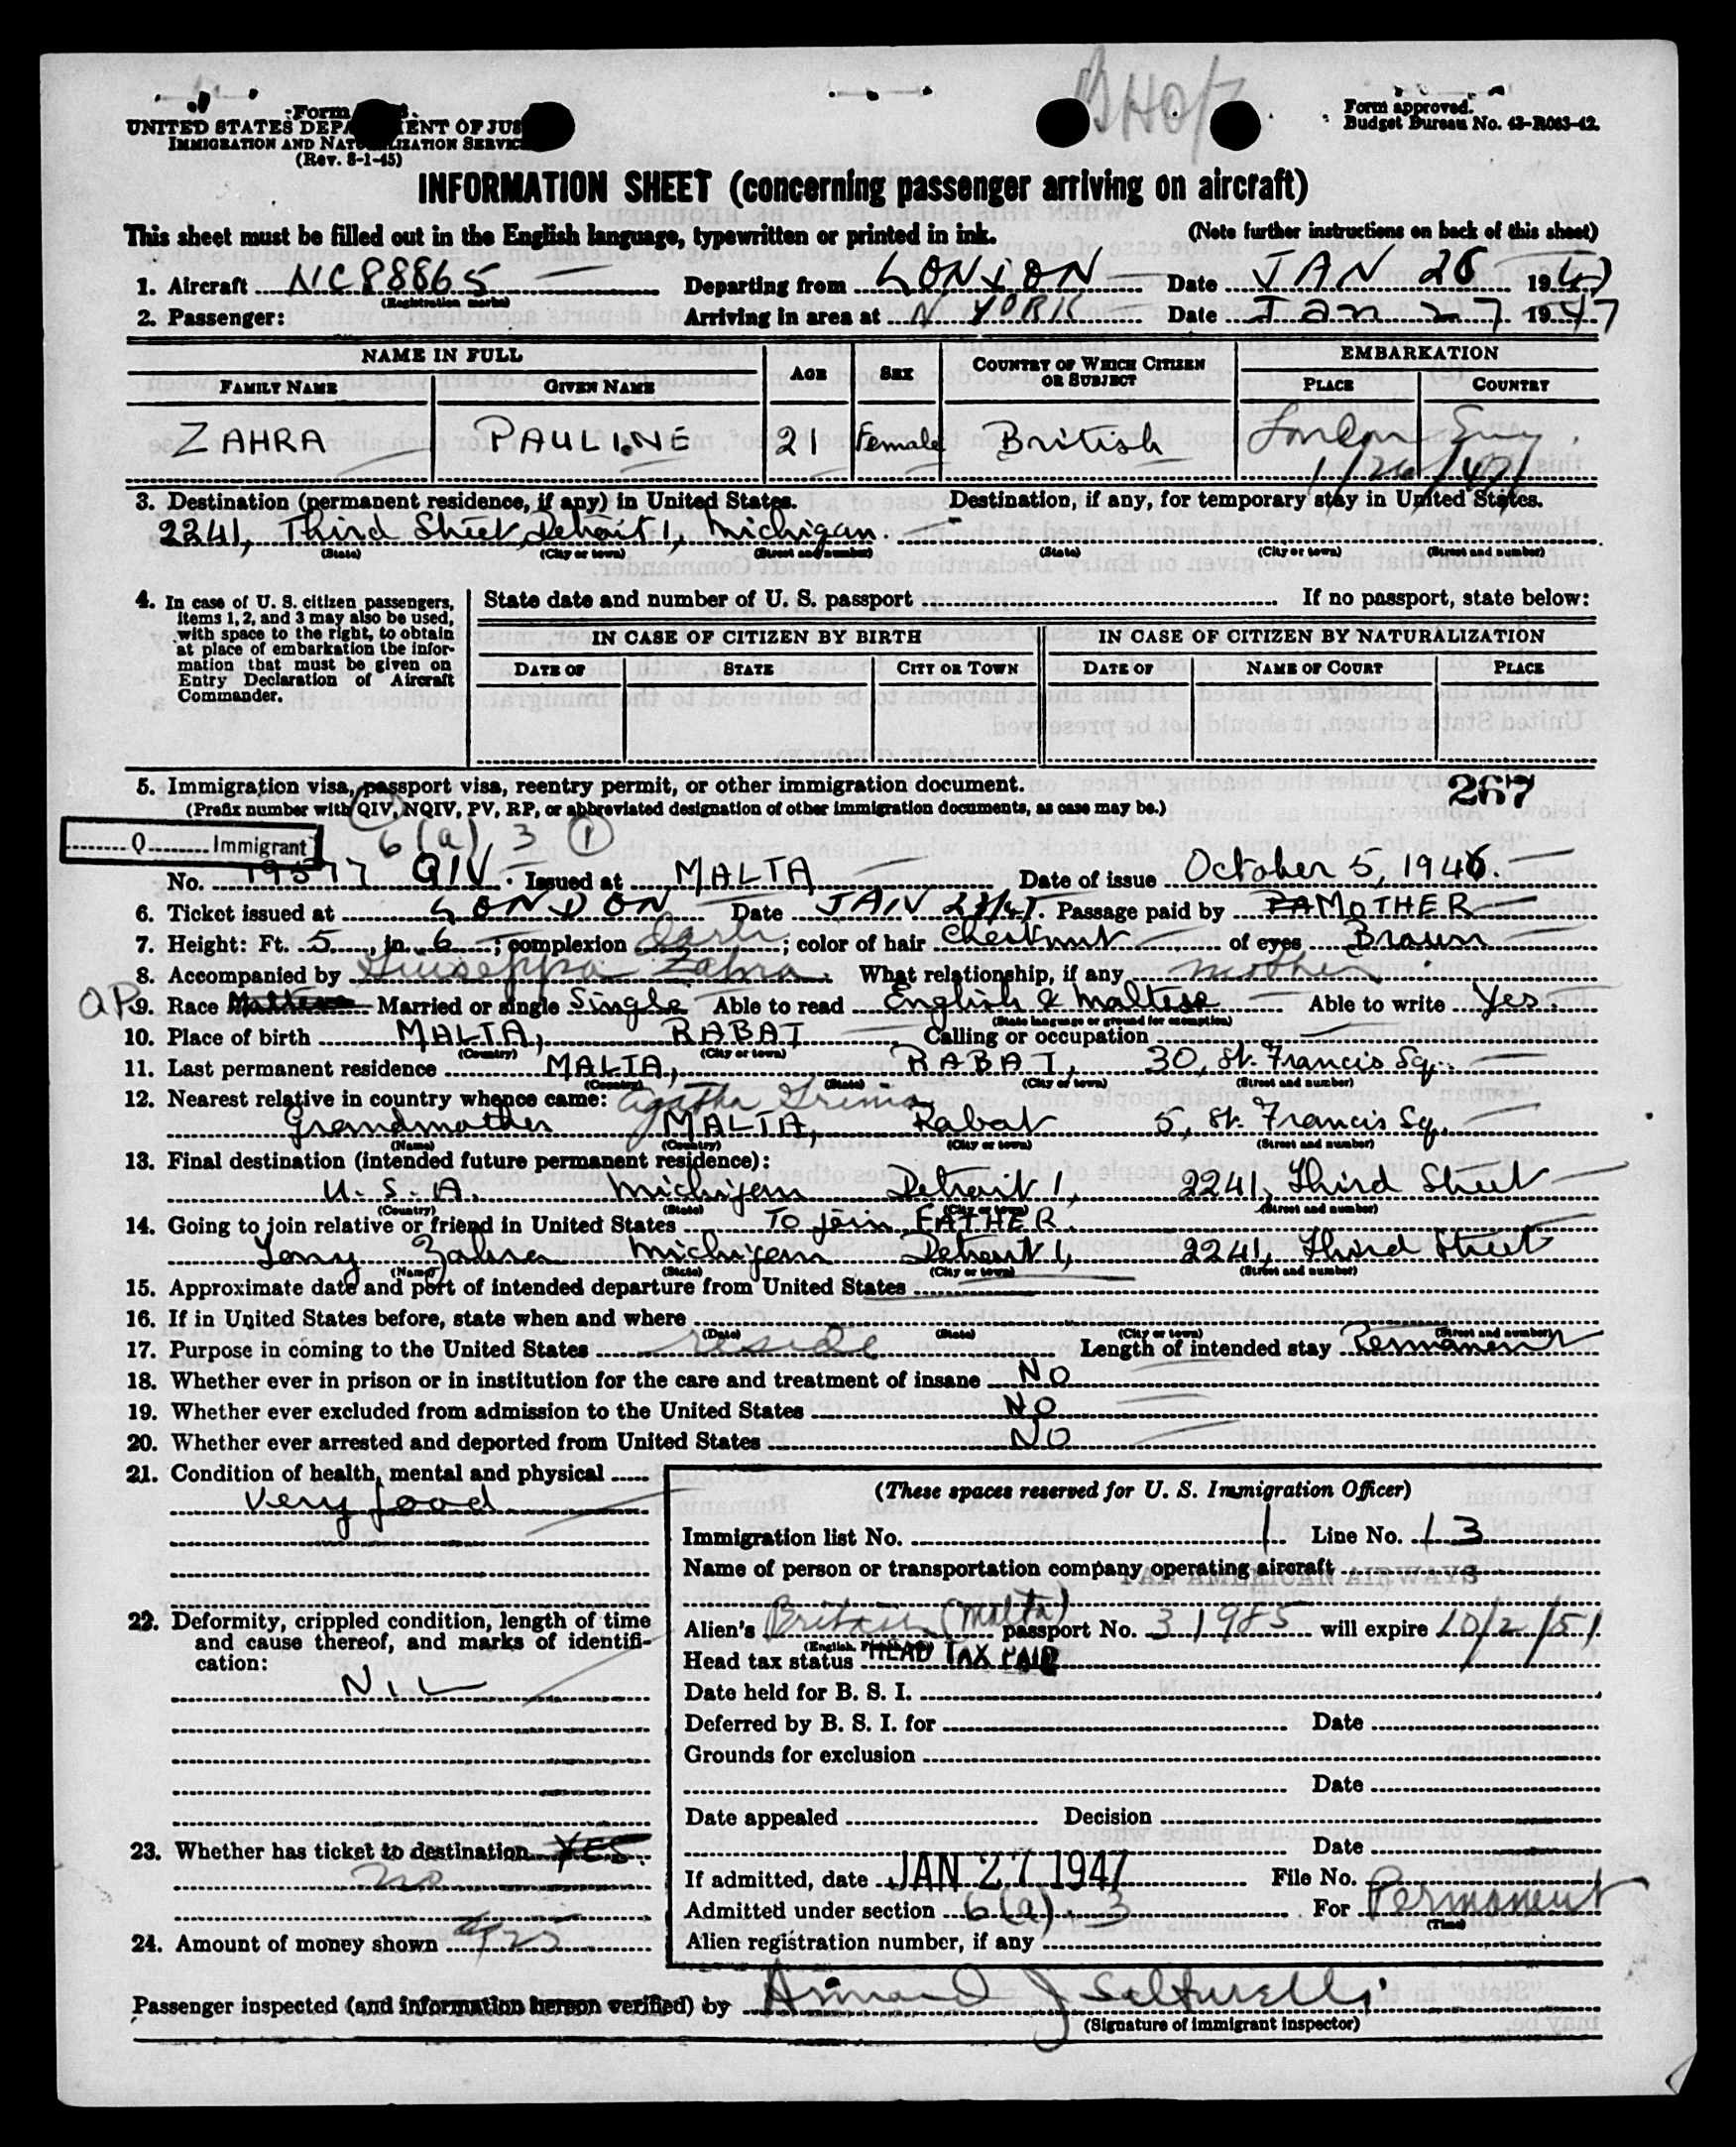 Form
UNITED STATES DEPARTMENT OF JUSTICE
IMMIGRATION AND NATURALIZATION SERVICE
(Rev. 8-1-45)
Form approved.
Budget Bureau No. 43-R063-42.
INFORMATION SHEET (concerning passenger arriving on aircraft)
This sheet must be filled out in the English language, typewritten or printed in ink. (Note further instructions on back of this sheet)
1. Aircraft NC88865 Departing from LONDON Date JAN 26 1947
(Registration marks)
2. Passenger: Arriving in area at N YORK Date Jan 27 1947
NAME IN FULL AGE SEX COUNTRY OF WHICH CITIZEN OR SUBJECT EMBARKATION
FAMILY NAME GIVEN NAME PLACE COUNTRY
ZAHRA PAULINE 21 Female British London Eng.
1/26/47
3. Destination (permanent residence, if any) in United States. Destination, if any, for temporary stay in United States.
2241, Third Street, Detroit 1, Michigan.
(State) (City or town) (Street and number) (State) (City or town) (Street and number)
4. In case of U. S. citizen passengers, items 1, 2, and 3 may also be used, with space to the right, to obtain at place of embarkation the information that must be given on Entry Declaration of Aircraft Commander.
State date and number of U. S. passport If no passport, state below:
IN CASE OF CITIZEN BY BIRTH IN CASE OF CITIZEN BY NATURALIZATION
DATE OF STATE CITY OR TOWN DATE OF NAME OF COURT PLACE
5. Immigration visa, passport visa, reentry permit, or other immigration document. 267
(Prefix number with QIV, NQIV, PV, RP, or abbreviated designation of other immigration documents, as case may be.)
Q Immigrant 6(a) 3 1
No. QIV. Issued at MALTA Date of issue October 5, 1946.
6. Ticket issued at LONDON Date JAN Passage paid by MOTHER
7. Height: Ft. 5, in. 6; complexion Dark; color of hair Chestnut of eyes Brown
8. Accompanied by Giuseppa Zahra. What relationship, if any mother.
9. Race Maltese Married or single Single Able to read English & Maltese Able to write Yes.
(State language or ground for exemption)
10. Place of birth MALTA, RABAT Calling or occupation
(Country) (City or town)
11. Last permanent residence MALTA, RABAT, 30, St. Francis Sq.
(Country) (State) (City or town) (Street and number)
12. Nearest relative in country whence came: Agatha Grima
Grandmother MALTA, Rabat 5, St. Francis Sq.
(Name) (Country) (City or town) (Street and number)
13. Final destination (intended future permanent residence):
U. S. A. Michigan Detroit 1, 2241, Third Street
(Country) (State) (City or town) (Street and number)
14. Going to join relative or friend in United States To join FATHER.
Tony Zahra Michigan Detroit 1, 2241, Third Street
(Name) (State) (City or town) (Street and number)
15. Approximate date and port of intended departure from United States
16. If in United States before, state when and where
(Date) (State) (City or town) (Street and number)
17. Purpose in coming to the United States reside Length of intended stay Permanent
18. Whether ever in prison or in institution for the care and treatment of insane NO
19. Whether ever excluded from admission to the United States NO
20. Whether ever arrested and deported from United States NO
21. Condition of health, mental and physical
Very good
22. Deformity, crippled condition, length of time and cause thereof, and marks of identification:
NIL
23. Whether has ticket to destination YES.
no
24. Amount of money shown
(These spaces reserved for U. S. Immigration Officer)
Immigration list No. 1 Line No. 13
Name of person or transportation company operating aircraft
PAN AMERICAN AIRWAYS
Alien's Britain (Malta) passport No. 31985 will expire 10/2/51
Head tax status HEAD TAX PAID
Date held for B. S. I.
Deferred by B. S. I. for Date
Grounds for exclusion
Date
Date appealed Decision
Date
If admitted, date JAN 27 1947 File No.
Admitted under section 6(a) 3 For Permanent
(Time)
Alien registration number, if any
Passenger inspected (and information hereon verified) by Armand J
(Signature of immigrant inspector)